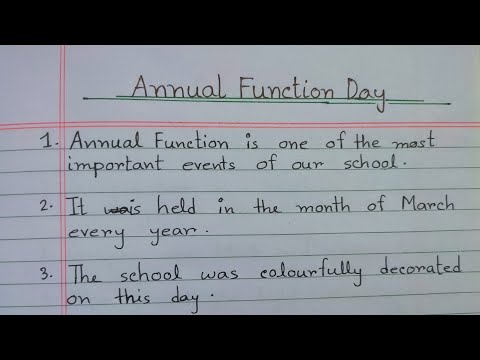 Annual Function Day
1. Annual Function is one of the most
important events of our school.
2. It is held in the month of March
every year.
3. The school was colourfully decorated
on this day.